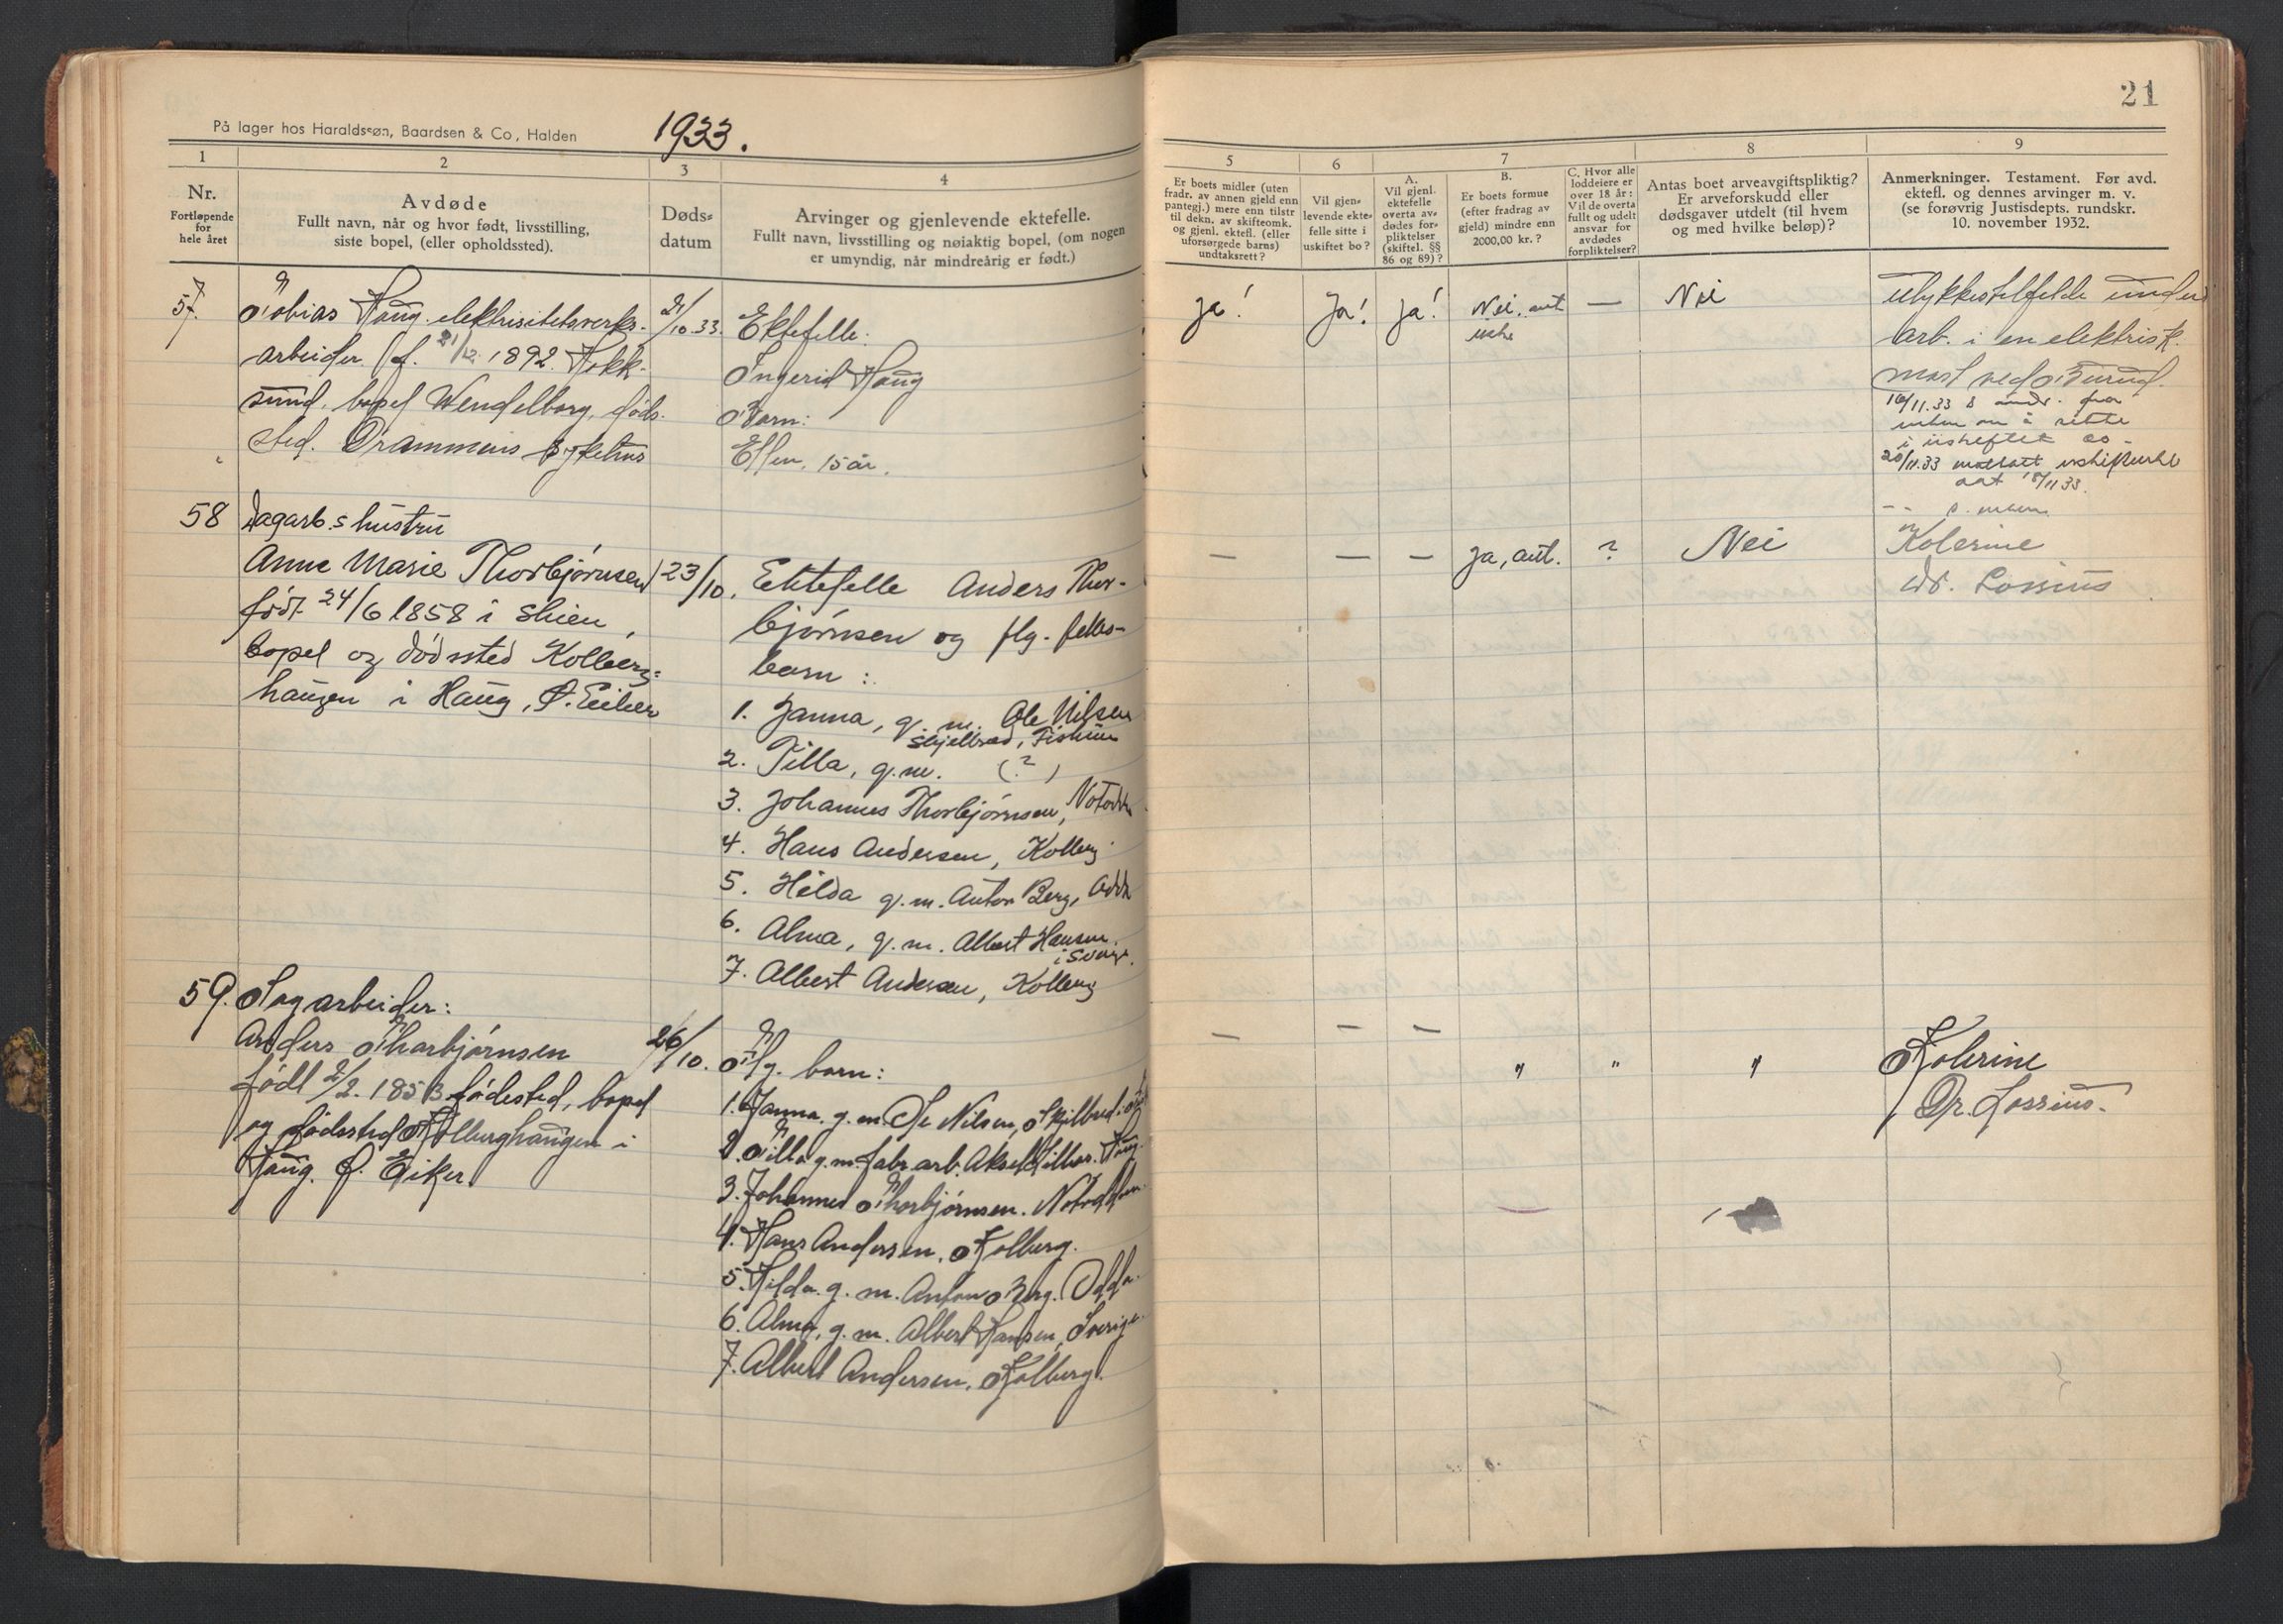 21
På lager hos Haraldssøn, Baardsen & Co, Halden
1933.
1
2
3
4
5
6
7
8
9
Nr.
Fortløpende
for
hele året
Avdøde
Fullt navn, når og hvor født, livsstilling,
siste bopel, (eller opholdssted).
Døds-
datum
Arvinger og gjenlevende ektefelle.
Fullt navn, livsstilling og nøiaktig bopel, (om nogen
er umyndig, når mindreårig er født.)
Er boets midler (uten
fradr. av annen gjeld enn
pantegj.) mere enn tilstr
til dekn. av skifteomk.
og gjenl. ektefl. (eller
uforsørgede barns)
undtaksrett?
Vil gjen-
levende ekte-
felle sitte i
uskiftet bo?
A.
Vil gjenl.
ektefelle
overta av-
dødes for-
pliktelser
(skiftel. §§
86 og 89)?
B.
Er boets formue
(efter fradrag av
gjeld) mindre enn
2000,00 kr.?
C. Hvor alle
loddeiere er
over 18 år:
Vil de overta
fullt og udelt
ansvar for
avdødes
forpliktelser?
Antas boet arveavgiftspliktig?
Er arveforskudd eller
dødsgaver utdelt (til hvem
og med hvilke beløp)?
Anmerkninger. Testament. Før avd.
ektefl. og dennes arvinger m. v.
(se forøvrig Justisdepts. rundskr.
10. november 1932.
57.
Tobias Haug. elektrisitetsverks-
arbeider f. 21/12 1892. Hokk-
sund. bopel Wendelborg, døds-
sted. Drammens sykehus
21/10.33.
Ektefelle:
Ingerid Haug
Barn:
Ellen, 15 år.
Ja!
Ja!
Ja!
Nei, ant
—
Nei
Ulykkestilfelde under
arb. i en elektrisk
mast ved
16/11.33
20/11.33
18/11 33.
58
Dagarb.s hustru
Anne Marie Thorbjørnsen
født 24/6 1858 i Skien,
bopel og dødssted Kolberg-
haugen i Haug, Ø. Eiker
23/10.
Ektefelle Anders Thor-
bjørnsen og flg. felles-
barn:
1. Janna, g. m. Ole Nilsen
Skjelbred, Fiskum
2. Tilla, g.m. (?)
3. Johannes Thorbjørnsen, Notodden
4. Hans Andersen, Kolberg
5. Hilda g.m. Anton Berg, Odda
6. Alma, g.m. Albert Hansen
i Sverige.
7. Albert Andersen, Kolberg
—
—
—
Ja, ant.
?
Nei
Kolerine
Dr. Lossius
59.
Sagarbeider:
Anders Thorbjørnsen
født 2/2. 1853 fødested, bopel
og dødssted Kolberghaugen i
Haug. Ø. Eiker.
26/10.
Flg. barn:
1. Janna. g. m. Ole Nilsen, Skjelbred
2. Tilla g.m. fabr.arb. Aksel Haug.
3. Johannes Thorbjørnsen. Notodden.
4. Hans Andersen. Kolberg.
5. Hilda. g. m. Anton Berg. Odda.
6. Alma, g. m. Albert Hansen, Sverige.
7. Albert Andersen. Kolberg.
—
—
—
"
"
"
Kolerine
Dr. Lossius.